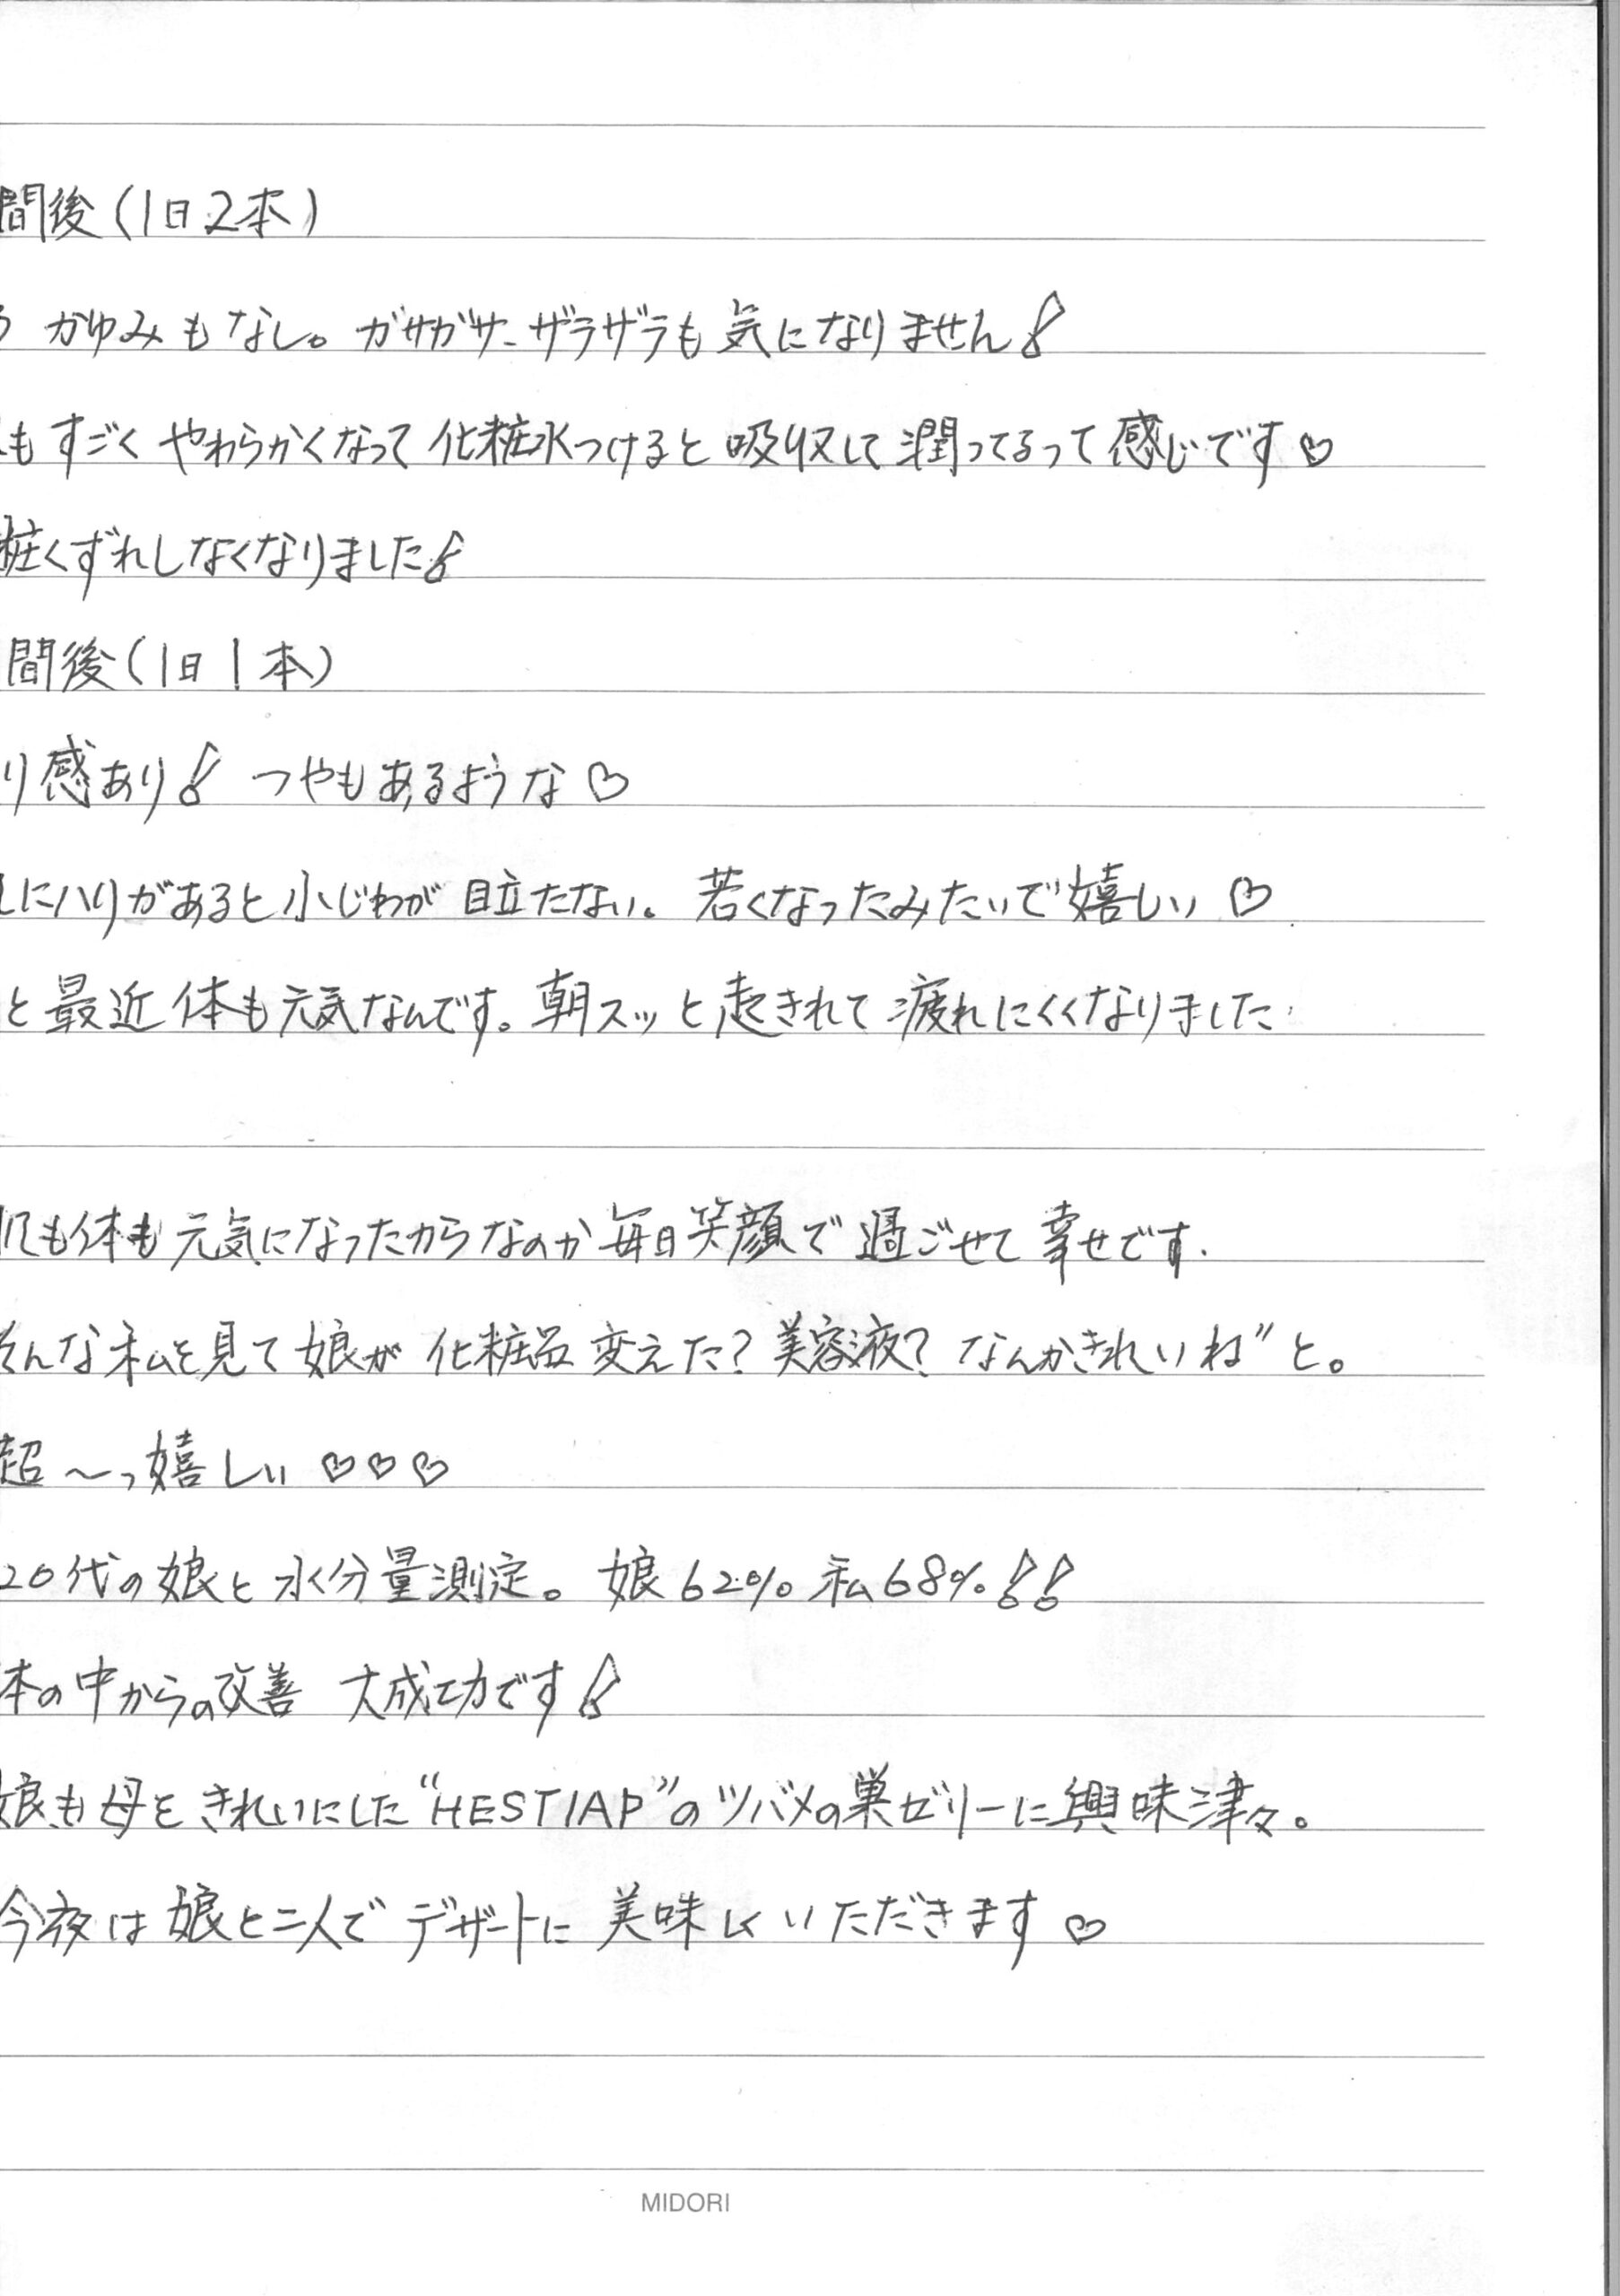 間後(1日2本)
かゆみもなし。ガサガサ、ザラザラも気になりません!
もすごくやわらかくなって化粧水つけると吸収して潤ってるって感じです♡
粧くずれしなくなりました!
間後(1日1本)
り感あり! つやもあるような♡
にハリがあると小じわが目立たない。若くなったみたいで嬉しい♡
と最近体も元気なんです。朝スッと起きれて疲れにくくなりました
肌も体も元気になったからなのか毎日笑顔で過ごせて幸せです.
そんな私を見て娘が化粧品変えた?美容液?なんかきれいね”と。
超〜っ嬉しい♡♡♡
20代の娘と水分量測定。娘62%私68%!!
体の中からの改善 大成功です!
娘も母をきれいにした“HESTIAP”のツバメの巣ゼリーに興味津々。
今夜は娘と二人でデザートに美味しくいただきます♡
MIDORI